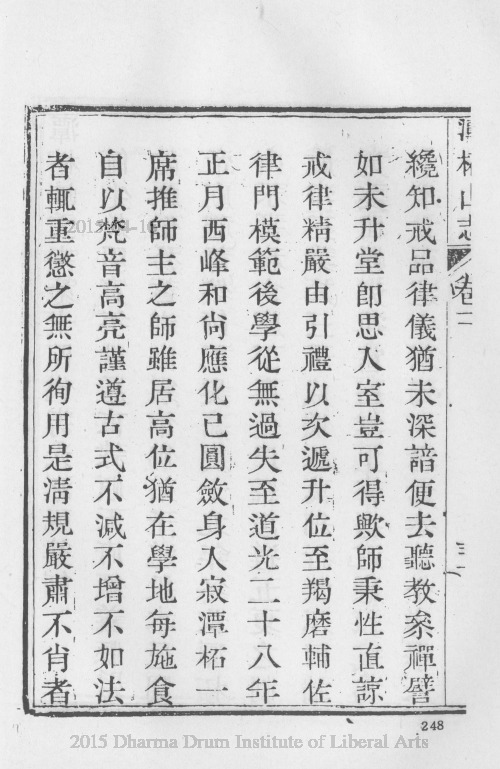 潭柘山志 卷二
纔知戒品律儀猶未深諳便去聽教叅禪譬
如未升堂卽思入室豈可得歟師秉性直諒
戒律精嚴由引禮以次遞升位至羯磨輔佐
律門模範後學從無過失至道光二十八年
正月西峰和尙應化已圓斂身入寂潭柘一
席推師主之師雖居高位猶在學地每施食
自以梵音高亮謹遵古式不減不增不如法
者輒重懲之無所徇用是淸規嚴肅不肖者
248
2015 Dharma Drum Institute of Liberal Arts